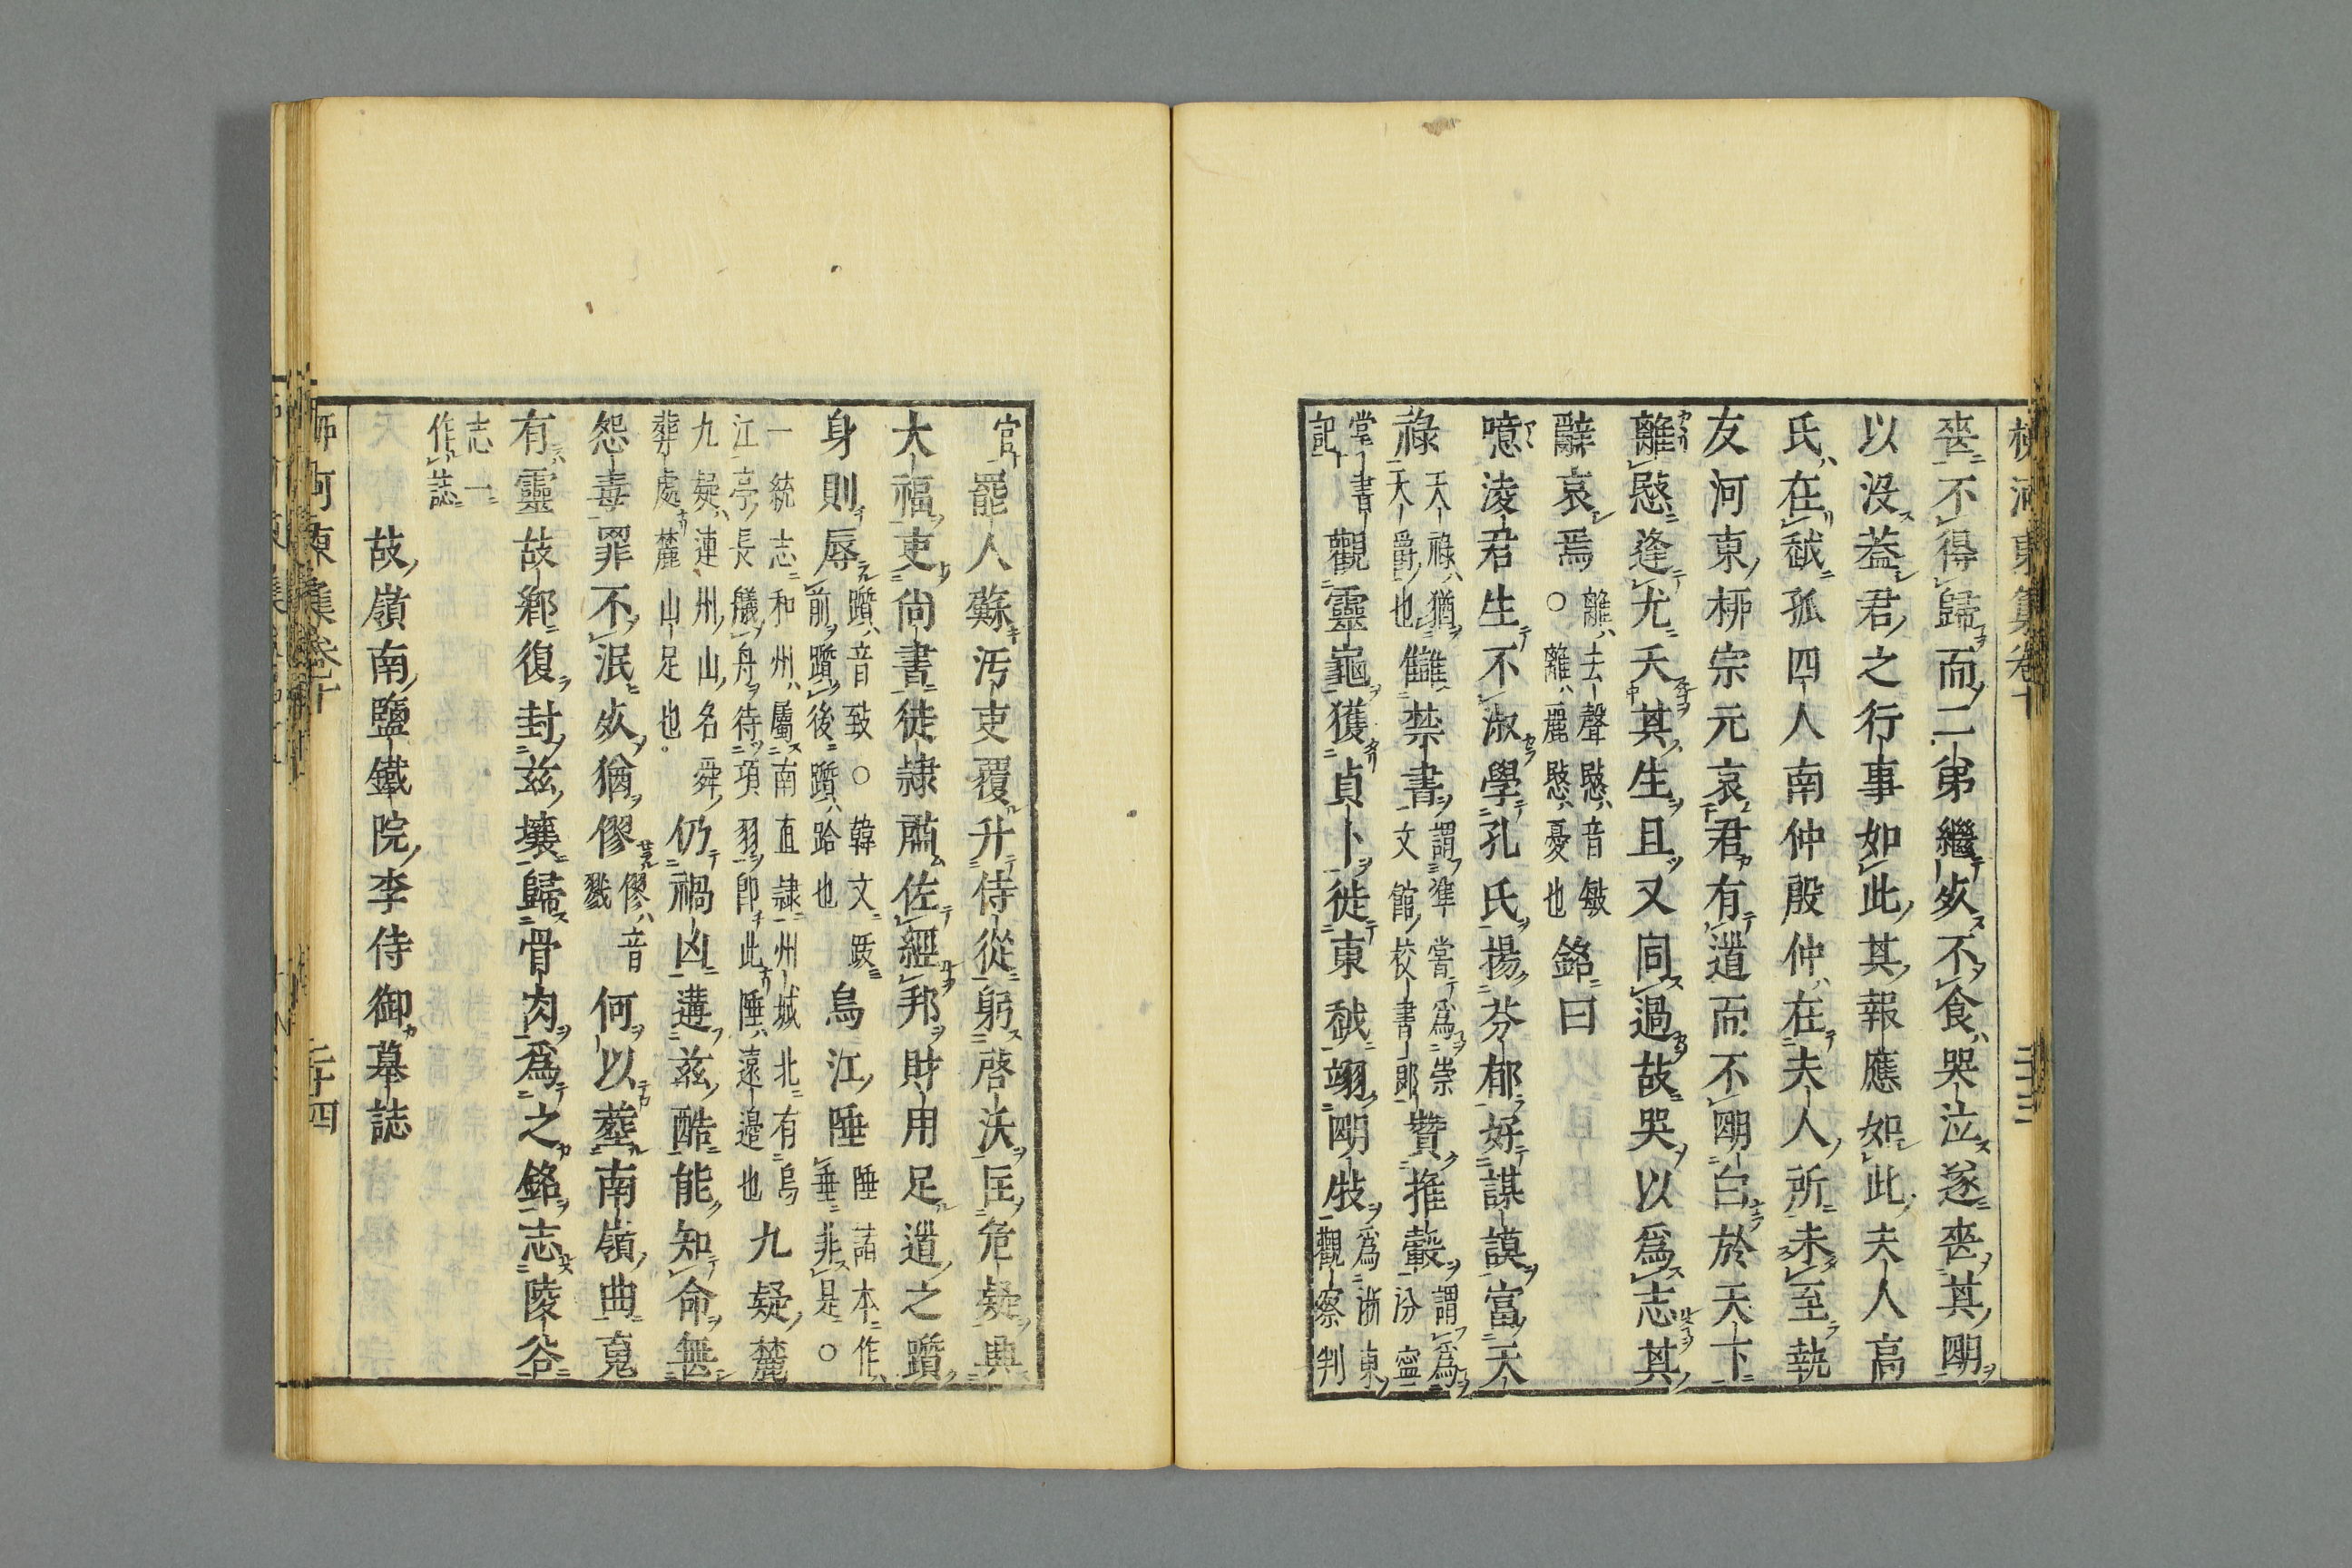 柳河東集卷十
二十三
喪不得歸而二弟繼死不食哭泣遂喪其明
以沒蓋君之行事如此其報應如此夫人高
氏在越孤四人南仲殷仲在夫人所未至執
友河東柳宗元哀君有道而不明白於天下
離愍逢尤夭其生且又同過故哭以爲志其
辭哀焉
離去聲愍音敏
○離麗愍憂也
銘曰
噫凌君生不淑學孔氏揚芬郁好謀謨富天
祿
天祿猶
天爵也
讎禁書
謂準嘗爲崇
文館校書郎
贊推轂
謂爲
汾寧
掌書
記
觀靈龜獲貞卜徙東越翊明牧
爲浙東
觀察判
官
罷人蘇汚吏覆升侍從躬啓沃匡危疑典
大福吏尚書徒隷肅佐經邦財用足道之躓
身則辱
躓音致○韓文跋
前躓後躓跲也
烏江陲
陲諸本作
垂非是○
一統志和州屬南直隷州城北有烏
江亭長艤舟待項羽卽此陲遠邉也
九疑麓
九疑連州山名舜
葬處麓山足也
仍禍凶遘兹酷能知命無
怨毒罪不泯死猶僇
僇音
戮
何以葬南嶺曲嵬
有靈故鄕復封兹壤歸骨肉爲之銘志陵谷
志一
作誌
故嶺南鹽鐵院李侍御墓誌
柳河東集卷十
二十四